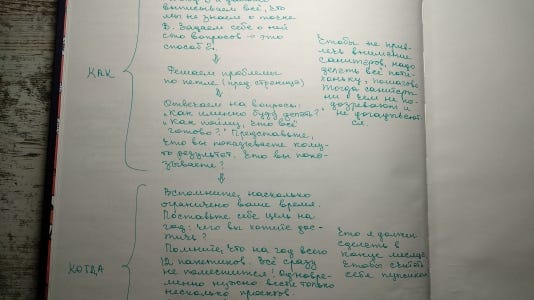 выписываем всё, что
мы не знаем о точке
Б. Задаем себе о ней
сто вопросов → это
способ Ё.
⇓
КАК
Решаем проблемы
по петле (пред. страница)
⇓
Отвечаем на вопросы:
„Как именно буду делать?"
„Как пойму, что всё
готово?" Представьте,
что вы показываете кому-
то результат. Что вы пока-
зываете?
Чтобы не прив-
лечь внимание
санитаров, надо
делать всё поти-
хоньку, помогая.
Тогда санитары
ни о чем не по-
дозревают и
не догадывают-
ся.
⇓
КОГДА
Вспомните, насколько
ограничено ваше время.
Поставьте себе цель на
год: чего вы хотите дос-
тичь?
Помните, что на год всего
12 пакетиков. Всё сразу
не поместится! Одновре-
менно нужно вести только
несколько проектов.
Что я должен
сделать в
конце месяца,
чтобы считать
себя пупсиком